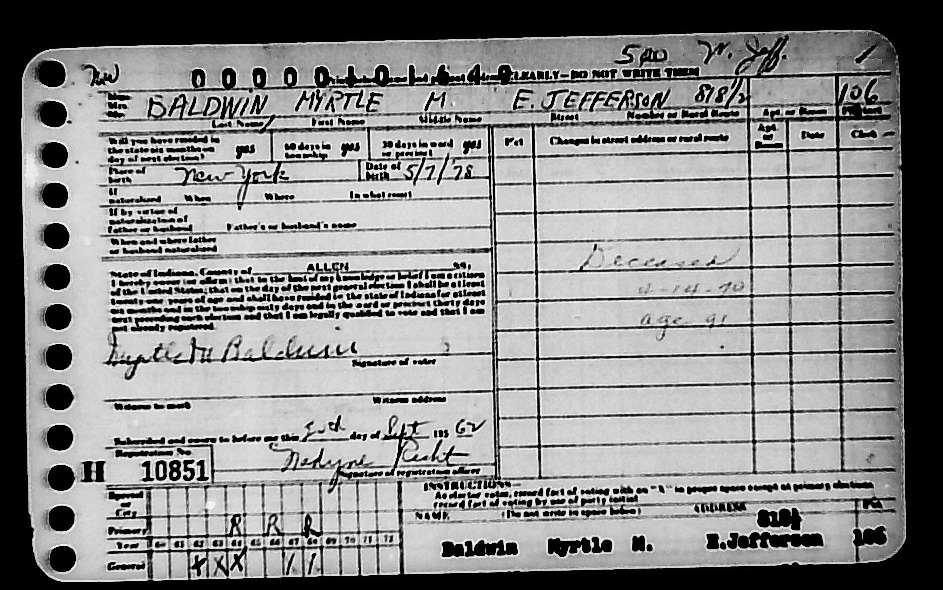 New 500 W. Jeff. 1
00000101640 CLEARLY—DO NOT WRITE THEM
Miss
Mrs.
Mr. BALDWIN, MYRTLE M E. JEFFERSON 818/2 106
Last Name First Name Middle Name Street Number or Rural Route Apt. or Room Precinct
Will you have resided in
the state six months on
day of next election? yes 60 days in
township yes 30 days in ward
or precinct yes
Pct Changes in street address or rural route Apt.
or
Room Date Clerk
Place of
birth New York Date of
birth 5/7/78
If
naturalized When Where In what court
If by virtue of
naturalization of
Father or husband Father's or husband's name
When and where father
or husband naturalized
Deceased
4-14-70
age 91
State of Indiana, County of ALLEN SS,
I hereby swear (or affirm) that to the best of my knowledge or belief I am a citizen
of the United States; that on the day of the next general election I shall be at least
twenty-one years of age and shall have resided in the state of Indiana for at least
six months and in the township sixty days and in the ward or precinct thirty days
next preceding such election and that I am legally qualified to vote and that I am
not already registered.
Myrtle M Baldwin
Signature of voter
Witness to mark Witness address
Subscribed and sworn to before me this day of Sept 195 62
Registration No.
H 10851 Nadyne
Signature of registration officer
Special
City
Primary R R R
Year 60 61 62 63 64 65 66 67 68 69 70 71 72
General X X X / /
INSTRUCTIONS—
As elector votes, record fact of voting with an "X" in proper space except at primary elections
record fact of voting by use of party initial
NAME (Do not write in space below) ADDRESS Pct
818½
Baldwin Myrtle M. E.Jefferson 106